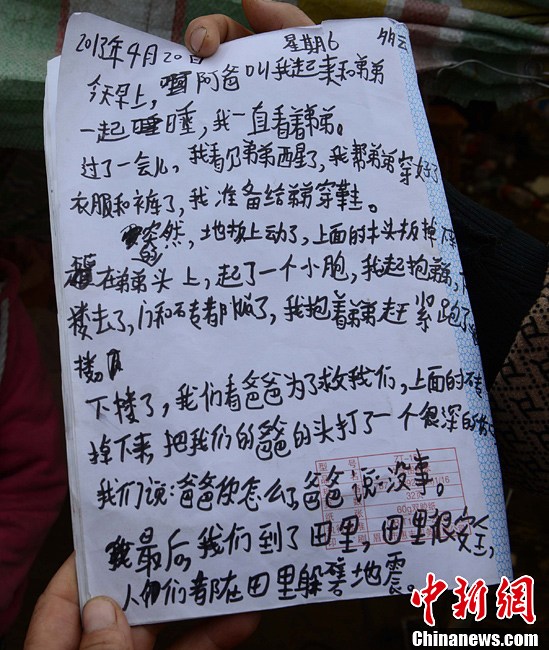 2013年4月20日 星期6
今天早上，阿爸叫我起来和弟弟
一起睡，我一直看着弟弟。
过了一会儿，我看见弟弟西星了，我帮弟弟穿好了
衣服和裤了，我准备给弟弟穿鞋。
突然，地板上动了，上面的木头板掉
在弟弟头上，起了一个小胞，我起抱弟弟，
楼去了，门和石专都了，我抱着弟弟赶紧跑了
楼。
下楼了，我们看爸爸为了救我们，上面的石专
掉下来，把我们的爸爸的头打了一个很深的
我们说：爸爸你怎么了，爸爸说：没事。
最后，我们到了田里，田里很安全，
人们都在田里躲地震。
型号
60g
中新网
Chinanews.com